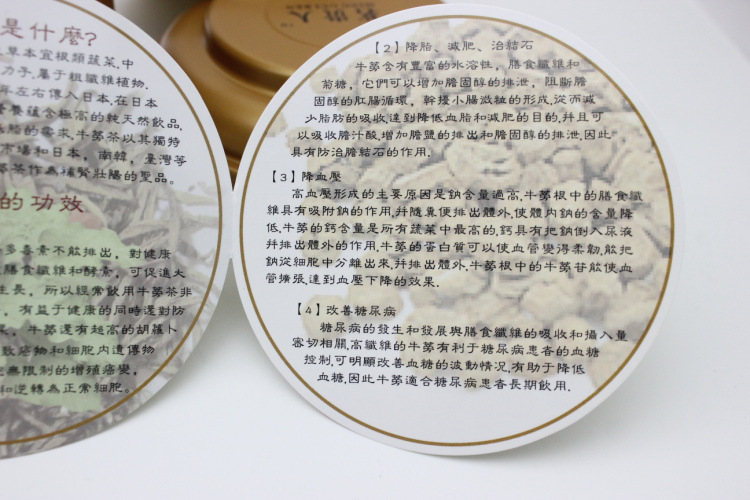 是什麼?
草本宜根類蔬菜,中
力子,屬于粗纖維植物.
年左右傳入日本,在日本
養蘊含極高的純天然飲品,
脂的需求.牛蒡茶以其獨特
市場和日本,南韓,臺灣等
茶作為補腎壯陽的聖品。
的功效
多毒素不能排出,對健康
膳食纖維和酵素,可促進大
生長,所以經常飲用牛蒡茶非
,有益于健康的同時還對防
牛蒡還有超高的胡蘿卜
致癌物和細胞內遺傳物
無限制的增殖癌變,
和逆轉為正常細胞。
【2】降脂、減肥、治結石
牛蒡含有豐富的水溶性,膳食纖維和
菊糖,它們可以增加膽固醇的排泄,阻斷膽
固醇的肛腸循環,幹擾小腸微粒的形成,從而減
少脂肪的吸收,達到降低血脂和減肥的目的,并且可
以吸收膽汁酸,增加膽鹽的排出和膽固醇的排泄,因此
具有防治膽結石的作用.
【3】降血壓
高血壓形成的主要原因是鈉含量過高,牛蒡根中的膳食纖
維具有吸附鈉的作用,并隨糞便排出體外,使體內鈉的含量降
低,牛蒡的鈣含量是所有蔬菜中最高的,鈣具有把鈉倒入尿液
并排出體外的作用,牛蒡的蛋白質可以使血管變得柔韌,能把
鈉從細胞中分離出來,并排出體外,牛蒡根中的牛蒡苷能使血
管擴張,達到血壓下降的效果.
【4】改善糖尿病
糖尿病的發生和發展與膳食纖維的吸收和攝入量
密切相關,高纖維的牛蒡有利于糖尿病患者的血糖
控制,可明顯改善血糖的波動情況,有助于降低
血糖,因此牛蒡適合糖尿病患者長期飲用.